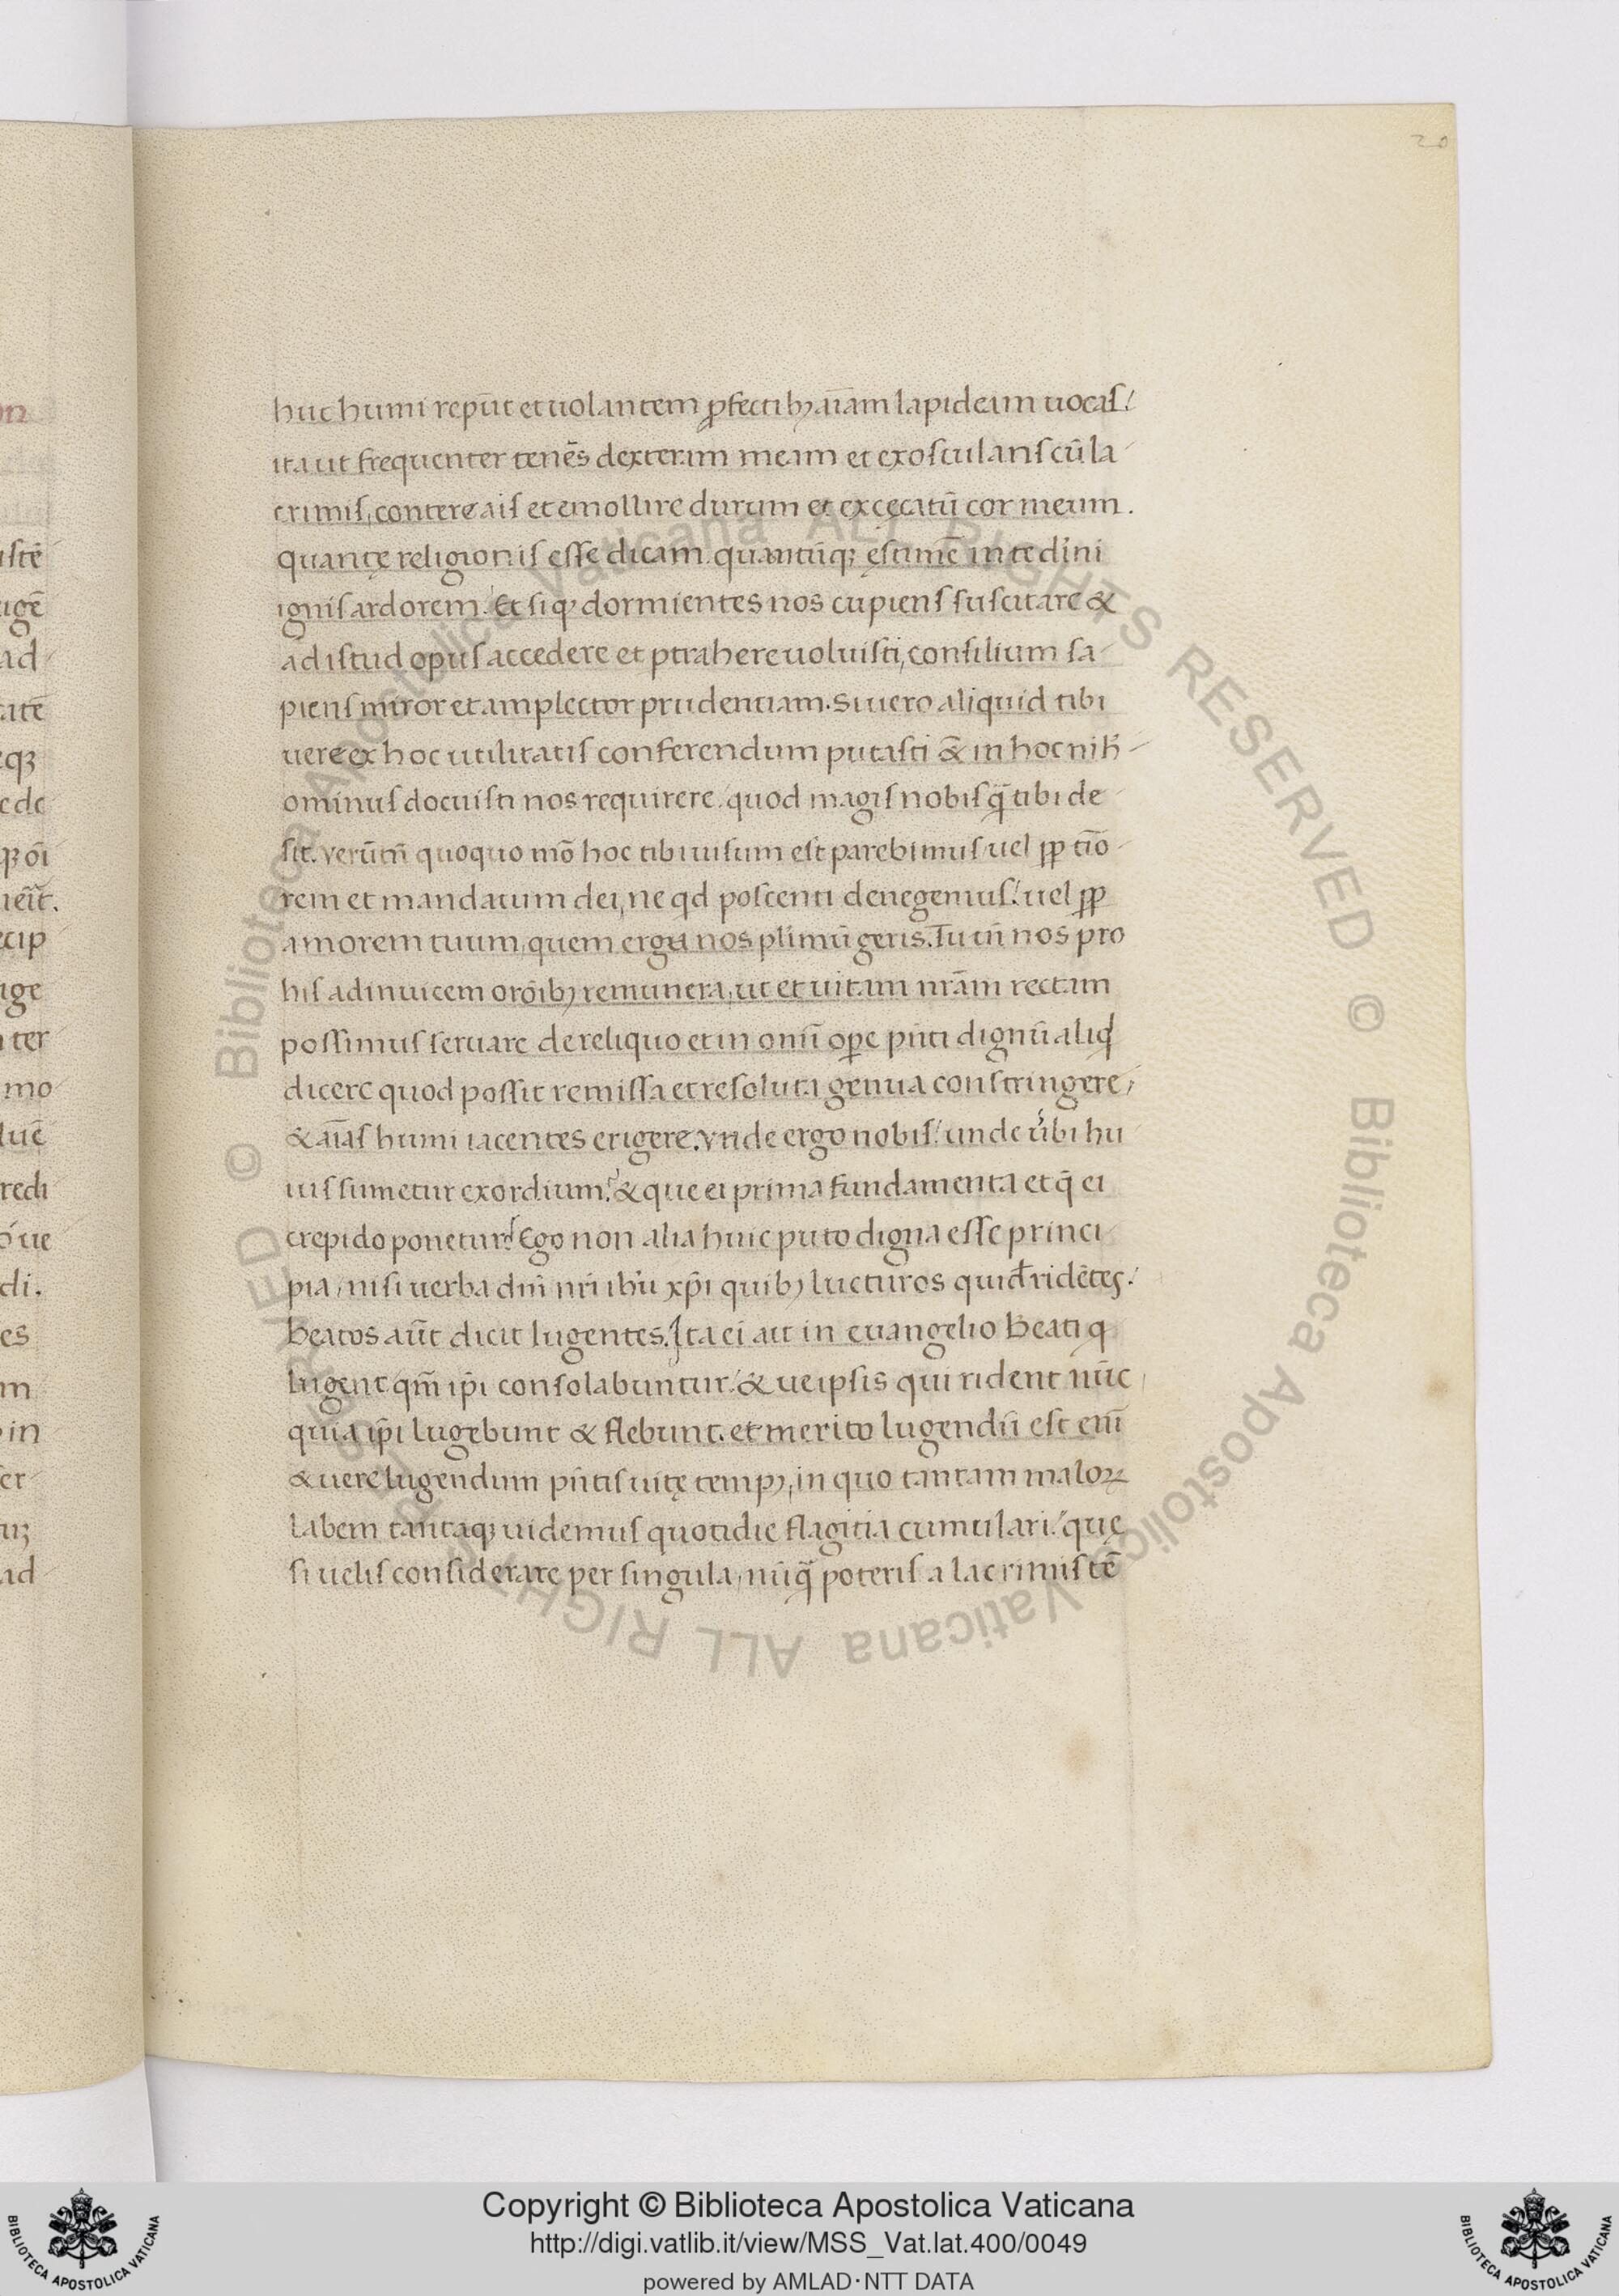 20
huc humi repūt et uolantem ꝓfectibꝫ aīam lapideam uocas!
ita ut frequenter tenēs dexteram meam et exosculans cū la-
crimis, contere ais et emollire durum et excęcatū cor meum.
quantę religionis esse dicam quantūqꝫ ęstimē in te diīni
ignis ardorem. Et siqꝫ dormientes nos cupiens suscitare &
ad istud opus accedere et ptrahere uoluisti, consilium sa-
piens miror et amplector prudentiam. Si uero aliquid tibi
uere ex hoc utilitatis conferendum putasti & in hoc nih̄-
ominus docuisti nos requirere. quod magis nobis q̄ tibi de-
sit. Verūtn̄ quoquo mō hoc tibi uisum est parebimus uel ꝓp tīo-
rem et mandatum dei, ne qd poscenti denegemus! uel ꝓp
amorem tuum, quem erga nos plīmū geris. Tu tn̄ nos pro
his adinuicem orōibꝫ remunera, ut et uitam nrām rectam
possimus seruare de reliquo et in omī ope pn̄ti dignū aliqd
dicere quod possit remissa et resoluta genua constringere,
& aīas humi iacentes erigere. Vnde ergo nobis! unde ūbi hu
ius sumetur exordium? & que ei prima fundamenta et q̄ ei
crepido ponetur? Ego non alia huic puto digna esse princi-
pia, nisi uerba dnī nrī ihū xp̄i quibꝫ lucturos quid̄ ridētes.
beatos aūt dicit lugentes. Ita ei ait in euangelio Beati q
lugent qm̄ ip̄i consolabuntur. & ue ipsis qui rident nūc
quia ip̄i lugebunt & flebunt. et merito lugendū est enī
& uere lugendum pn̄tis uitę tempꝫ, in quo tantam maloꝝ
labem tantaqꝫ uidemus quotidie flagitia cumulari. quę
si uelis considerare per singula, nūq̄ poteris a lacrimis tē
© Biblioteca Apostolica Vaticana ALL RIGHTS RESERVED
Copyright © Biblioteca Apostolica Vaticana
http://digi.vatlib.it/view/MSS_Vat.lat.400/0049
powered by AMLAD·NTT DATA
BIBLIOTECA APOSTOLICA VATICANA
BIBLIOTECA APOSTOLICA VATICANA